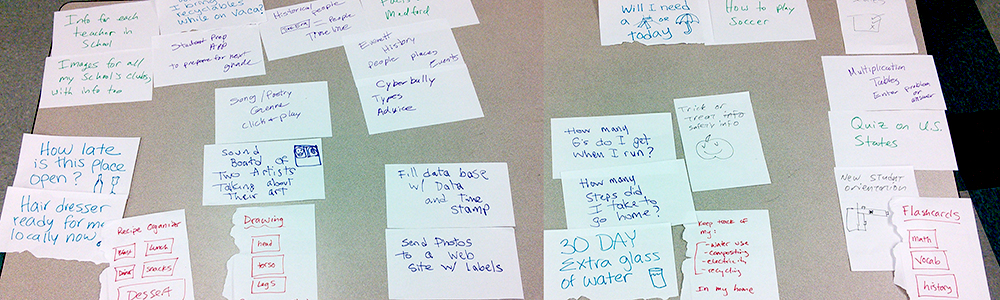 Info for each
teacher in
School
I bring
recyclables
while on Vaca?
Historical people
= People
Time line
Medford
Images for all
my school's clubs
with info too
Student Prep
App
to prepare for next
grade
Event
History
people places
Events
Cyberbully
Types
Advice
Song/Poetry
Genre
click + play
How late
is this place
open?
Sound
Board of
Two Artists
Talking about
Their art
Hair dresser
ready for me
locally now.
Recipe Organizer
Lunch
snacks
Dessert
Drawing
head
torso
Legs
Fill data base
w/ Data
and Time
Stamp
Send Photos
to a web
site w/ labels
Will I need
a or
today
How to play
Soccer
Multiplication
Tables
Enter problem
or
answer
Trick or
Treat info
safety info
How many
G's do I get
when I run?
Quiz on U.S.
States
How many
Steps did
I take to
go home?
New Student
orientation
30 DAY
Extra glass
of water
Keep track of
my:
- water use
- composting
- electricity
- recycling
In my home
Flashcards
math
vocab
history